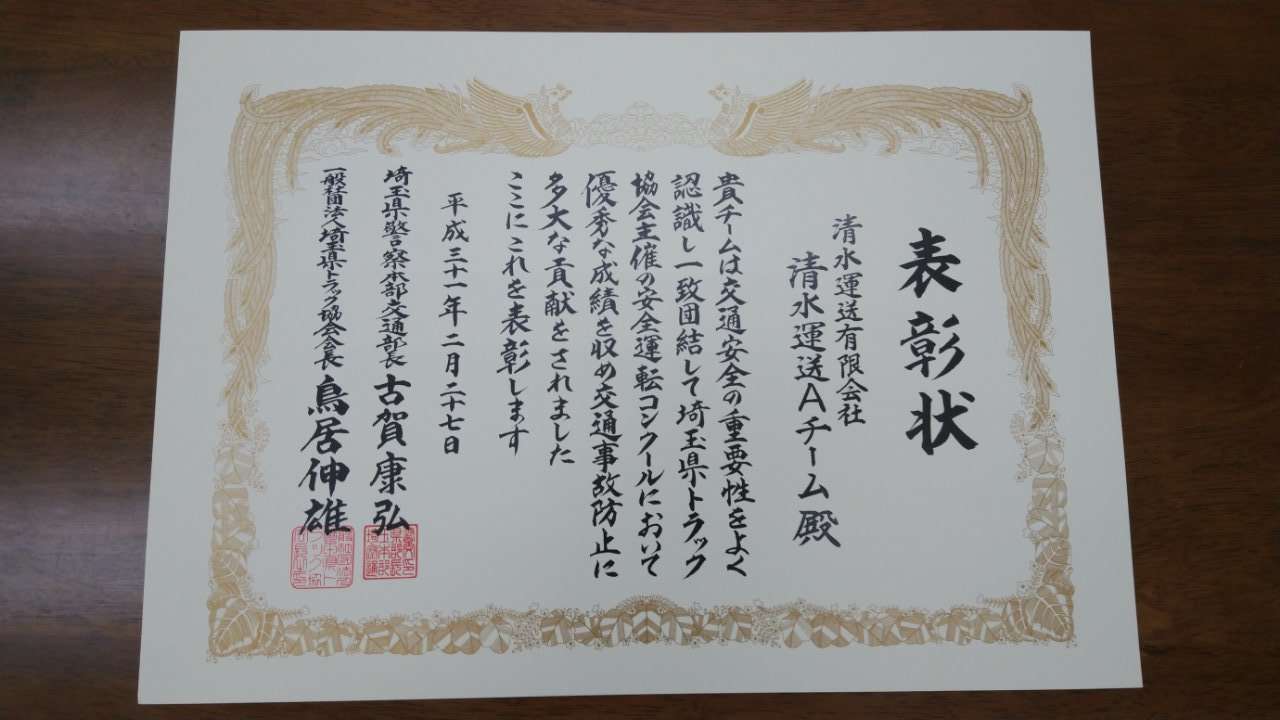 表彰状
清水運送有限会社
清水運送Aチーム殿
貴チームは交通安全の重要性をよく
認識し一致団結して埼玉県トラック
協会主催の安全運転コンクールにおいて
優秀な成績を収め交通事故防止に
多大な貢献をされました
ここにこれを表彰します
平成三十一年二月二十七日
埼玉県警察本部交通部長 古賀康弘
一般社団法人埼玉県トラック協会会長 鳥居伸雄